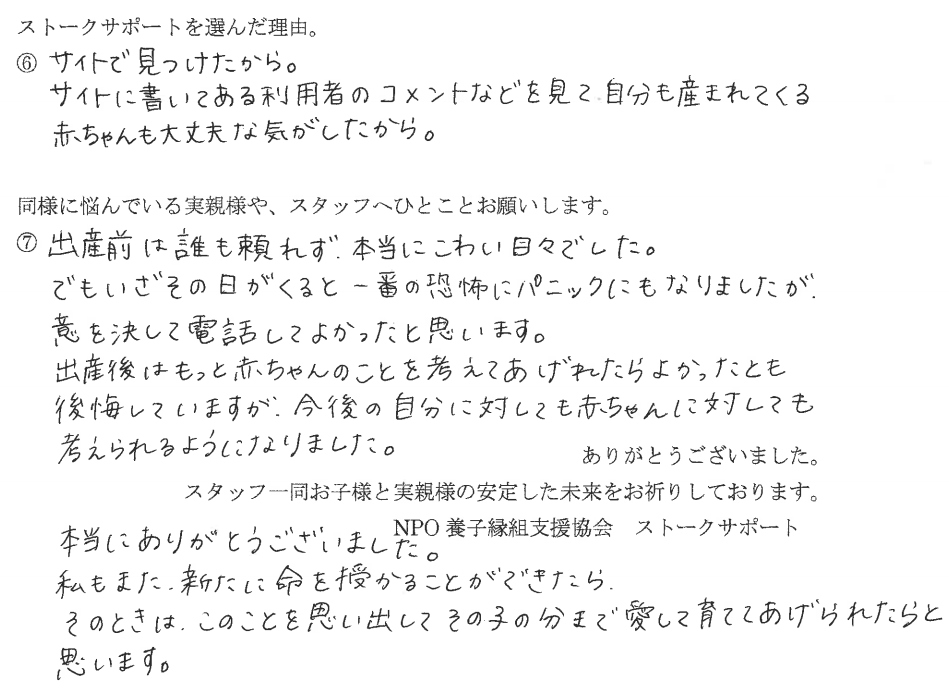 ストークサポートを選んだ理由。
⑥ サイトで見つけたから。
サイトに書いてある利用者のコメントなどを見て、自分も産まれてくる
赤ちゃんも大丈夫な気がしたから。
同様に悩んでいる実親様や、スタッフへひとことお願いします。
⑦ 出産前は誰も頼れず、本当にこわい日々でした。
でもいざその日がくると一番の恐怖にパニックにもなりましたが、
意を決して電話してよかったと思います。
出産後はもっと赤ちゃんのことを考えてあげれたらよかったとも
後悔していますが、今後の自分に対しても赤ちゃんに対しても
考えられるようになりました。
ありがとうございました。
スタッフ一同お子様と実親様の安定した未来をお祈りしております。
NPO 養子縁組支援協会　ストークサポート
本当にありがとうございました。
私もまた、新たに命を授かることができたら、
そのときは、このことを思い出してその子の分まで愛して育ててあげられたらと
思います。